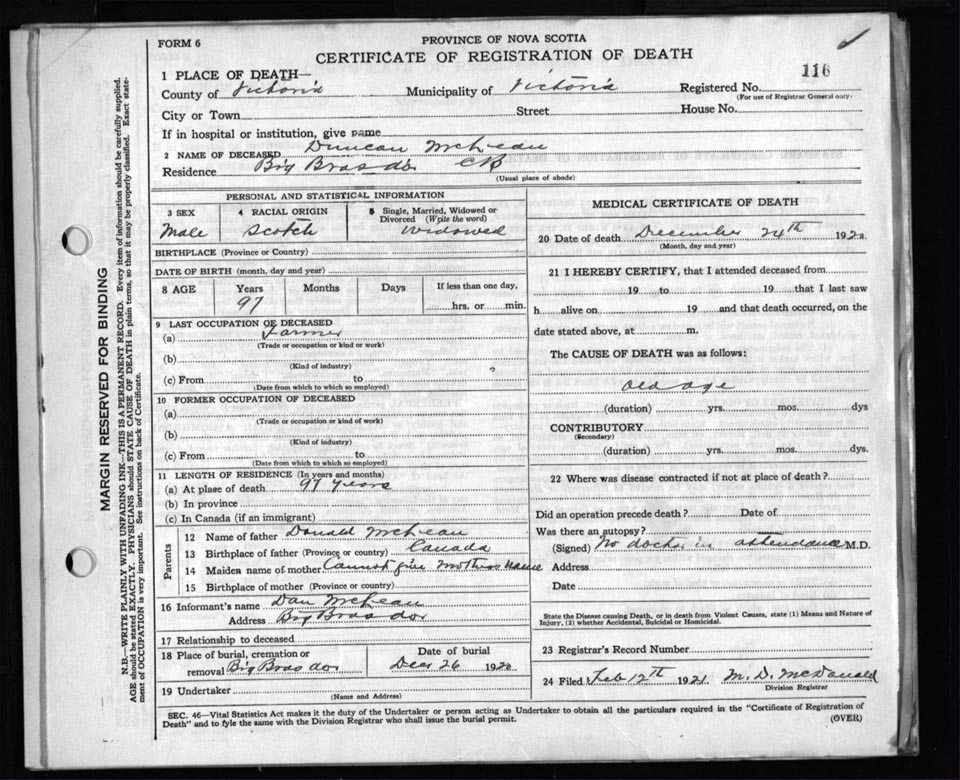 FORM 6
PROVINCE OF NOVA SCOTIA
CERTIFICATE OF REGISTRATION OF DEATH
116
1 PLACE OF DEATH—
County of Victoria Municipality of Victoria Registered No.
(For use of Registrar General only.)
City or Town Street House No.
If in hospital or institution, give name
2 NAME OF DECEASED Duncan McLean
Residence Big Bras dor CB
(Usual place of abode)
PERSONAL AND STATISTICAL INFORMATION
3 SEX
Male
4 RACIAL ORIGIN
Scotch
5 Single, Married, Widowed or
Divorced (Write the word)
Widowed
BIRTHPLACE (Province or Country)
DATE OF BIRTH (month, day and year)
8 AGE Years Months Days If less than one day,
97 hrs. or min.
9 LAST OCCUPATION OF DECEASED
(a) Farmer
(Trade or occupation or kind or work)
(b)
(Kind of industry)
(c) From to
(Date from which to which so employed)
10 FORMER OCCUPATION OF DECEASED
(a)
(Trade or occupation or kind of work)
(b)
(Kind of industry)
(c) From to
(Date from which to which so employed)
11 LENGTH OF RESIDENCE (In years and months)
(a) At place of death 97 years
(b) In province
(c) In Canada (if an immigrant)
Parents
12 Name of father Donald McLean
13 Birthplace of father (Province or country) Canada
14 Maiden name of mother Cannot give Mothers Name
15 Birthplace of mother (Province or country)
16 Informant's name Dan McLean
Address Big Bras dor
17 Relationship to deceased
18 Place of burial, cremation or
removal Big Bras dor
Date of burial
Dec 26 1920
19 Undertaker
(Name and Address)
MEDICAL CERTIFICATE OF DEATH
20 Date of death December 24th 1920
(Month, day and year)
21 I HEREBY CERTIFY, that I attended deceased from
19 to 19 that I last saw
h alive on 19 and that death occurred, on the
date stated above, at m.
The CAUSE OF DEATH was as follows:
old age
(duration) yrs. mos. dys
CONTRIBUTORY
(Secondary)
(duration) yrs. mos. dys.
22 Where was disease contracted if not at place of death?
Did an operation precede death? Date of
Was there an autopsy?
(Signed) No doctor in attendance M.D.
Address
Date
State the Disease causing Death, or in death from Violent Causes, state (1) Means and Nature of
Injury, (2) whether Accidental, Suicidal or Homicidal.
23 Registrar's Record Number
24 Filed Feb 12th 1921 M. D. McDonald
Division Registrar
SEC. 46—Vital Statistics Act makes it the duty of the Undertaker or person acting as Undertaker to obtain all the particulars required in the "Certificate of Registration of
Death" and to fyle the same with the Division Registrar who shall issue the burial permit.
(OVER)
MARGIN RESERVED FOR BINDING
N.B.—WRITE PLAINLY WITH UNFADING INK—THIS IS A PERMANENT RECORD. Every item of information should be carefully supplied.
AGE should be stated EXACTLY. PHYSICIANS should STATE CAUSE OF DEATH in plain terms, so that it may be properly classified. Exact state-
ment of OCCUPATION is very important. See instructions on back of Certificate.